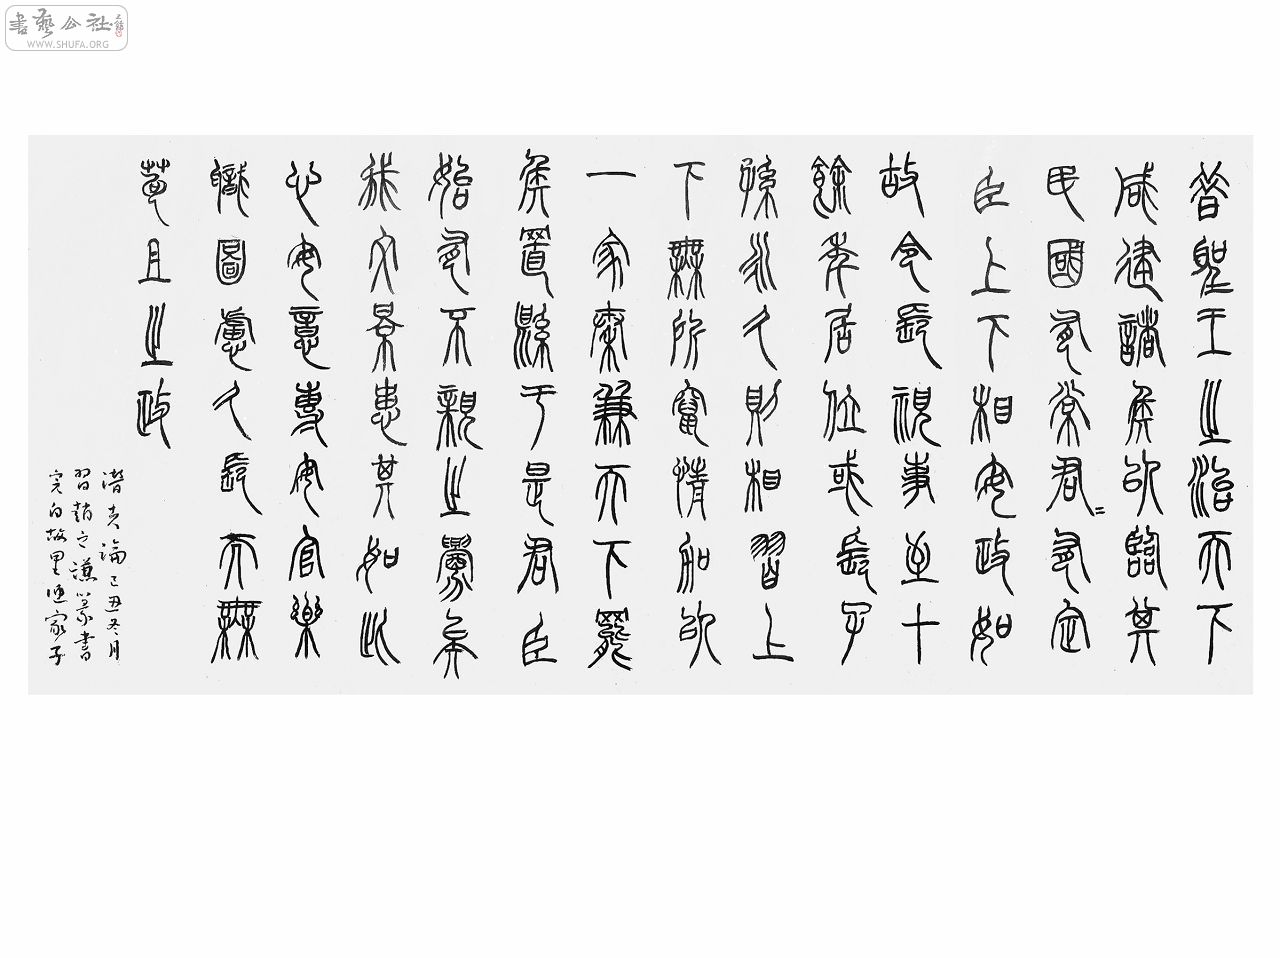 書藝公社
WWW.SHUFA.ORG
昔聖王之治天下
咸建諸侯以臨其
民國有常君=有定
臣上下相安政如
故令長視事至十
餘年居位或長子
孫永久則相習上
下無所竄情加以
一家秦兼天下罷
侯置縣于是君臣
始有不親之釁矣
我文景患其如此
心安意專安官樂
職圖慮久長而無
苟且之政
潛夫論己丑冬月
習趙之謙篆書
完白故里家子